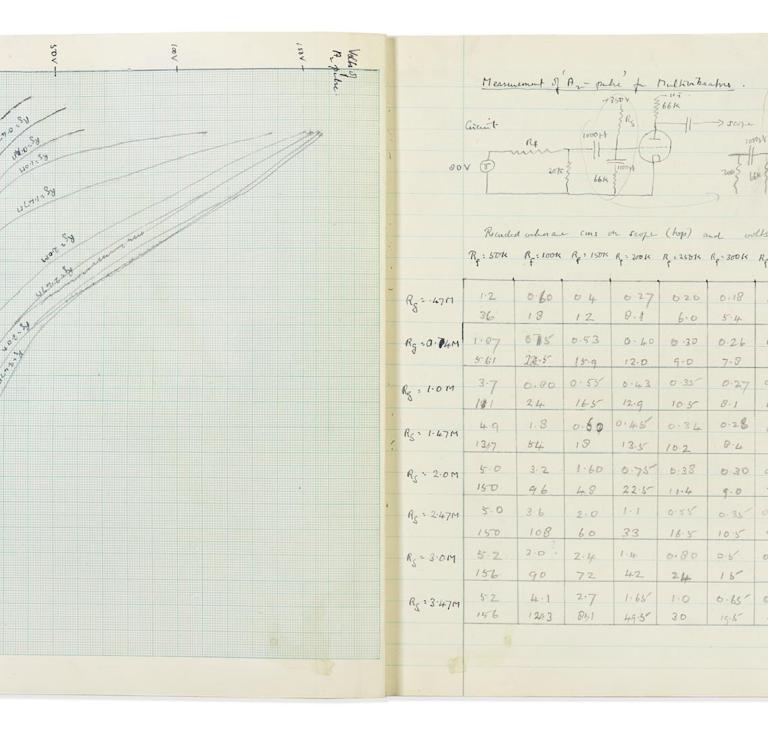 50V
100V
150V
Volts of
A2 pulse.
Rg=1.0M
Rg=1.47M
Rg=2.0M
Rg=2.47M
Measurement of 'A2-pulse' for Multivibrators.
Circuit
+250V
66K
Rg
→ scope
Rf
1000pf
20K
100pf
66K
1000pf
66K
Recorded in cms on scope (top) and volts
Rf=50K Rf=100K Rf=150K Rf=200K Rf=250K Rf=300K Rf
Rg=.47M 1.2 0.60 0.4 0.27 0.20 0.18
36 18 12 8.1 6.0 5.4
1.87 0.75 0.53 0.40 0.30 0.26
56.1 22.5 15.9 12.0 9.0 7.8
Rg=1.0M 3.7 0.80 0.55 0.43 0.35 0.27
111 24 16.5 12.9 10.5 8.1
Rg=1.47M 4.9 1.8 0.60 0.45 0.34 0.28
54 18 13.5 10.2 8.4
Rg=2.0M 5.0 3.2 1.60 0.75 0.38 0.30
150 96 48 22.5 11.4 9.0
Rg=2.47M 5.0 3.6 2.0 1.1 0.55 0.35
150 108 60 33 16.5 10.5
Rg=3.0M 5.2 3.0 2.4 1.4 0.80 0.5
156 90 72 42 24 15
Rg=3.47M 5.2 4.1 2.7 1.65 1.0 0.65
156 123 49.5 30 19.5